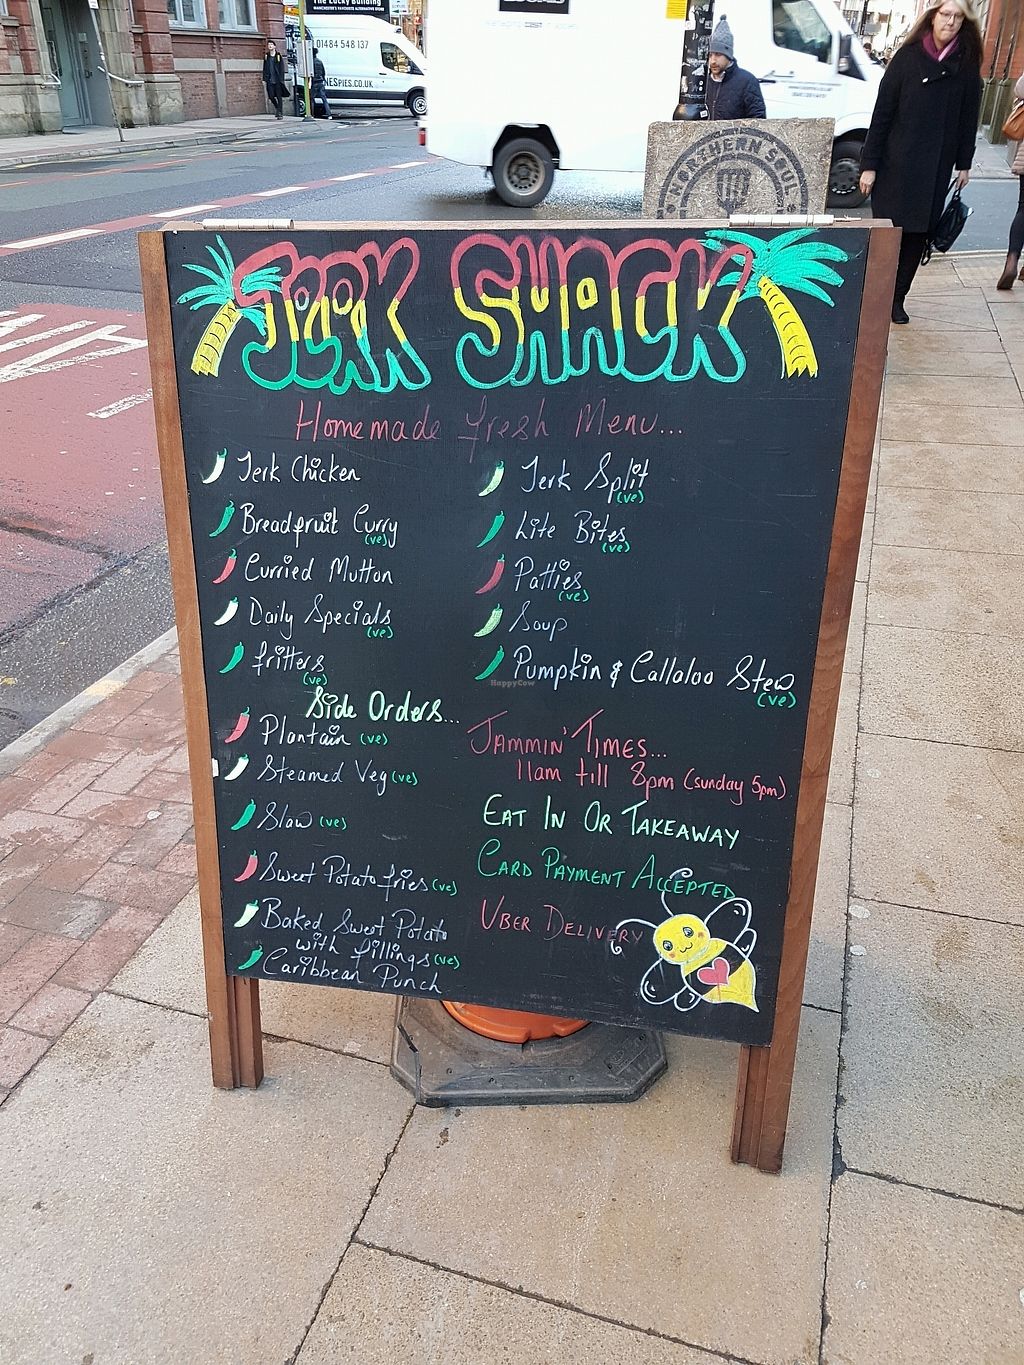 The Lucky Building
MANCHESTER'S FAVOURITE ALTERNATIVE STORE
01484 548 137
NESPIES.CO.UK
NORTHERN SOUL
JERK SHACK
Homemade fresh Menu...
Jerk Chicken
Breadfruit Curry
(ve)
Curried Mutton
Daily Specials
(ve)
fritters
(ve)
Side Orders...
Plantain (ve)
Steamed Veg (ve)
Slaw (ve)
Sweet Potato fries (ve)
Baked Sweet Potato
with fillings (ve)
Caribbean Punch
Jerk Split
(ve)
Lite Bites
(ve)
Patties
(ve)
Soup
Pumpkin & Callaloo Stew
(ve)
HappyCow
JAMMIN' TIMES...
11am till 8pm (sunday 5pm)
EAT IN OR TAKEAWAY
CARD PAYMENT ACCEPTED
UBER DELIVERY